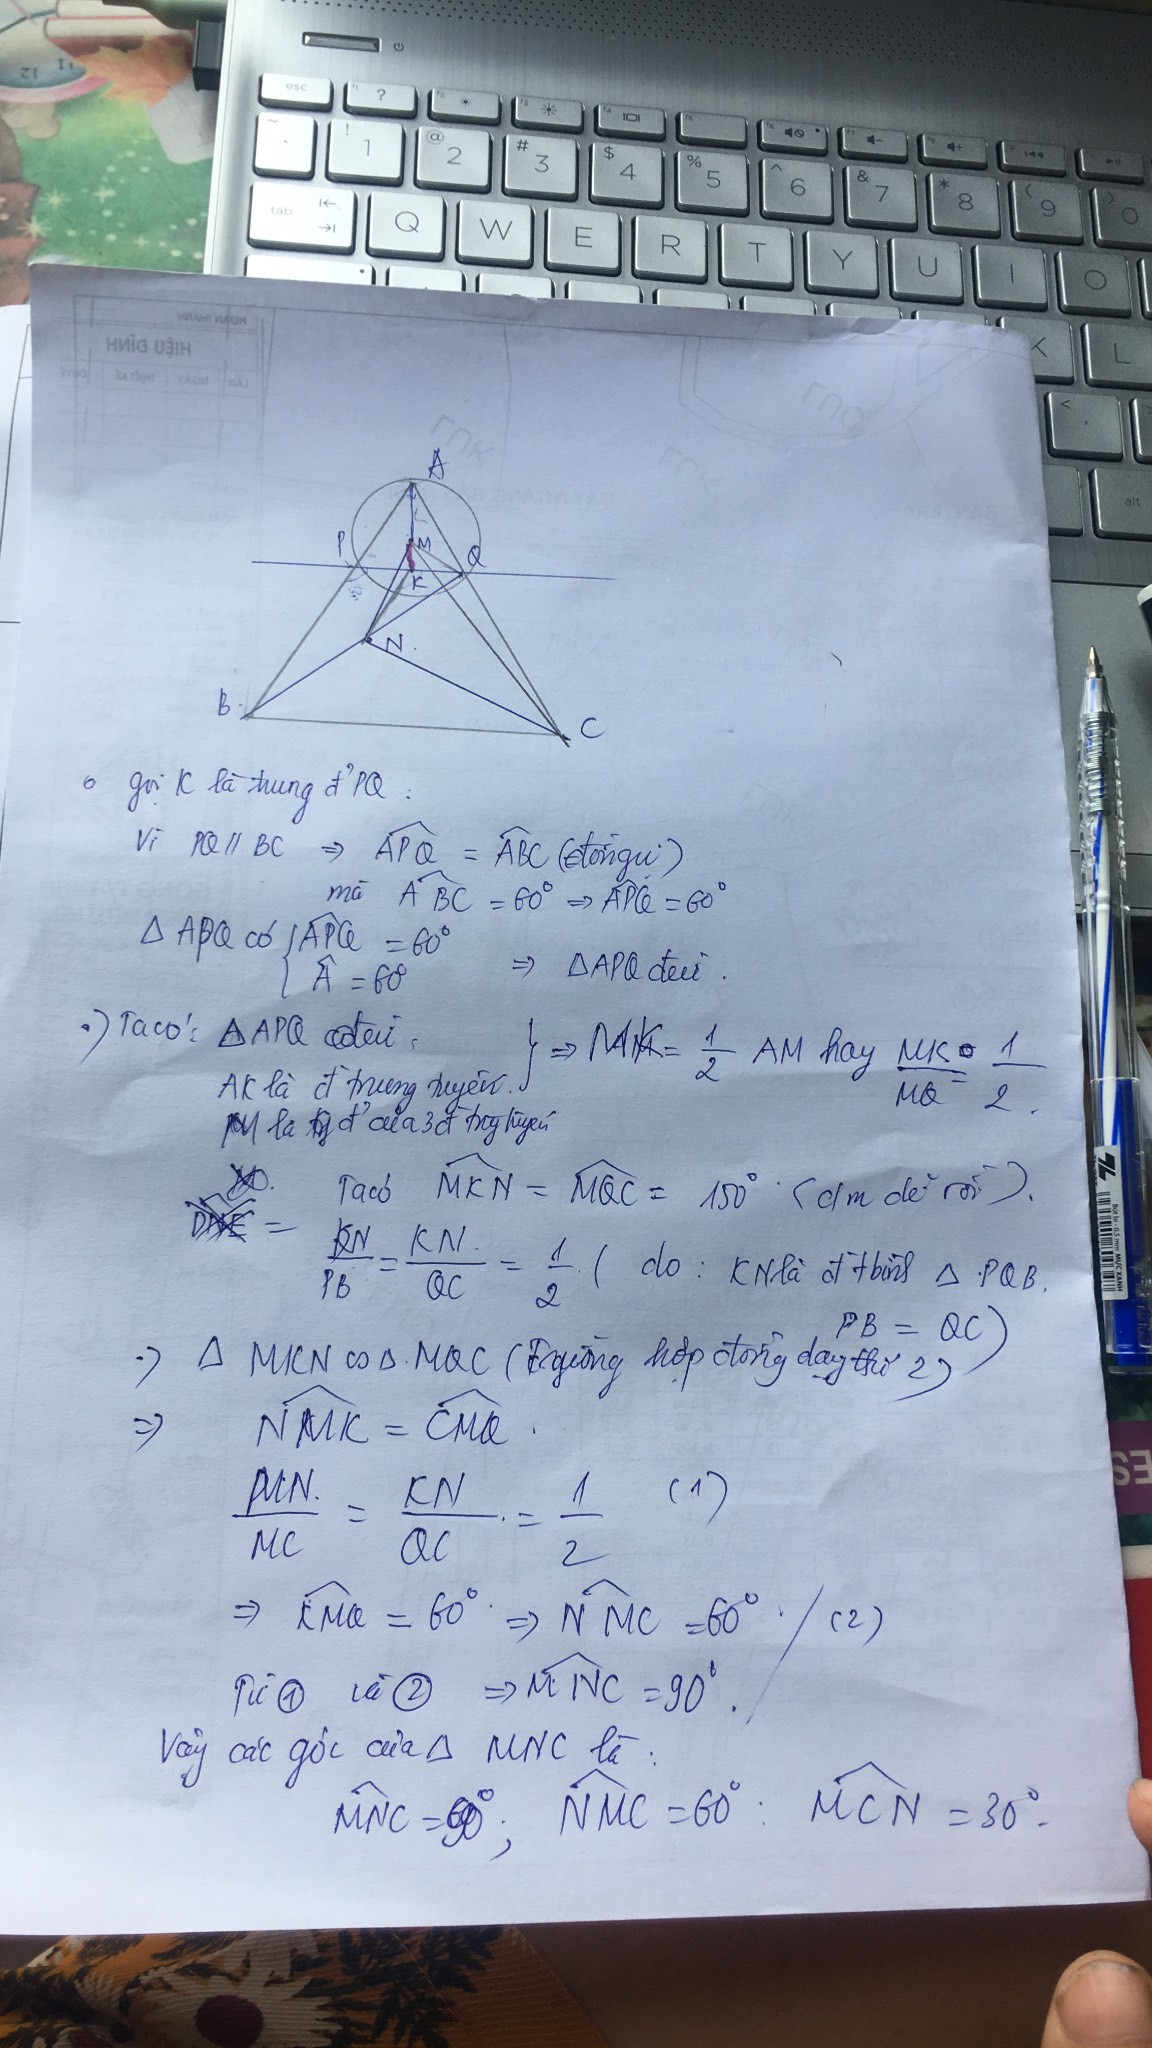 esc ?
~ ` ! 1 @ 2 # 3 $ 4 % 5 ^ 6 & 7 * 8 ( 9 ) 0
tab Q W E R T Y U I O
K L
< ,
alt
HOÀN THÀNH
HIỆU ĐÍNH
LẦN NGÀY THIẾT KẾ DUYỆT
A
P M Q
K
N
B C
gọi K là trung đ' PQ :
Vì PQ // BC => APQ = ABC (đồng vị)
mà ABC = 60° => APQ = 60°
Δ APQ có { APQ = 60°
A = 60° => ΔAPQ đều .
.) Ta có : Δ APQ đều .
AK là đ trung tuyến. } => MK = 1/2 AM hay MK/MQ = 1/2 .
M là đ' của 3 đ tuyến
Ta có MKN = MQC = 150° (cm dễ rồi).
KN/PB = KN/QC = 1/2 ( do : KN là đ tbình Δ PQB.
PB = QC)
.) Δ MKN ∽ Δ MQC (Trường hợp đồng dạng thứ 2)
=> NMK = CMQ .
MN/MC = KN/QC = 1/2 (1)
=> KMQ = 60° => NMC = 60° (2)
Từ ① và ② => MNC = 90° .
Vậy các góc của Δ MNC là :
MNC = 90° ; NMC = 60° : MCN = 30° .